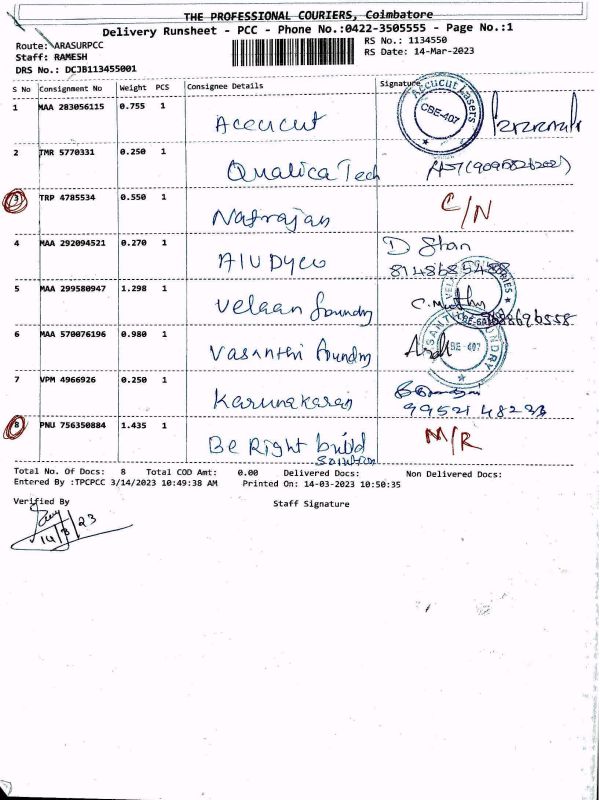 THE PROFESSIONAL COURIERS, Coimbatore
Delivery Runsheet - PCC - Phone No.:0422-3505555 - Page No.:1
Route: ARASURPCC
RS No.: 1134550
Staff: RAMESH
RS Date: 14-Mar-2023
DRS No.: DCJB113455001
S No Consignment No Weight PCS Consignee Details Signature
1 MAA 283056115 0.755 1 Accucut
Accucut Lasers CBE-407
2 TMR 5770331 0.250 1 Qualica Tech
3 TRP 4785534 0.550 1 Natrajan C/N
4 MAA 292094521 0.270 1 D Stan
8148685488
5 MAA 299580947 1.298 1 Velaan foundry
6 MAA 570076196 0.980 1 Vasanthi foundry
7 VPM 4966926 0.250 1 Karunakaran
8 PNU 756350884 1.435 1 Be Right build M/R
Total No. Of Docs: 8 Total COD Amt: 0.00 Delivered Docs: Non Delivered Docs:
Entered By :TPCPCC 3/14/2023 10:49:38 AM Printed On: 14-03-2023 10:50:35
Verified By Staff Signature
14/3/23